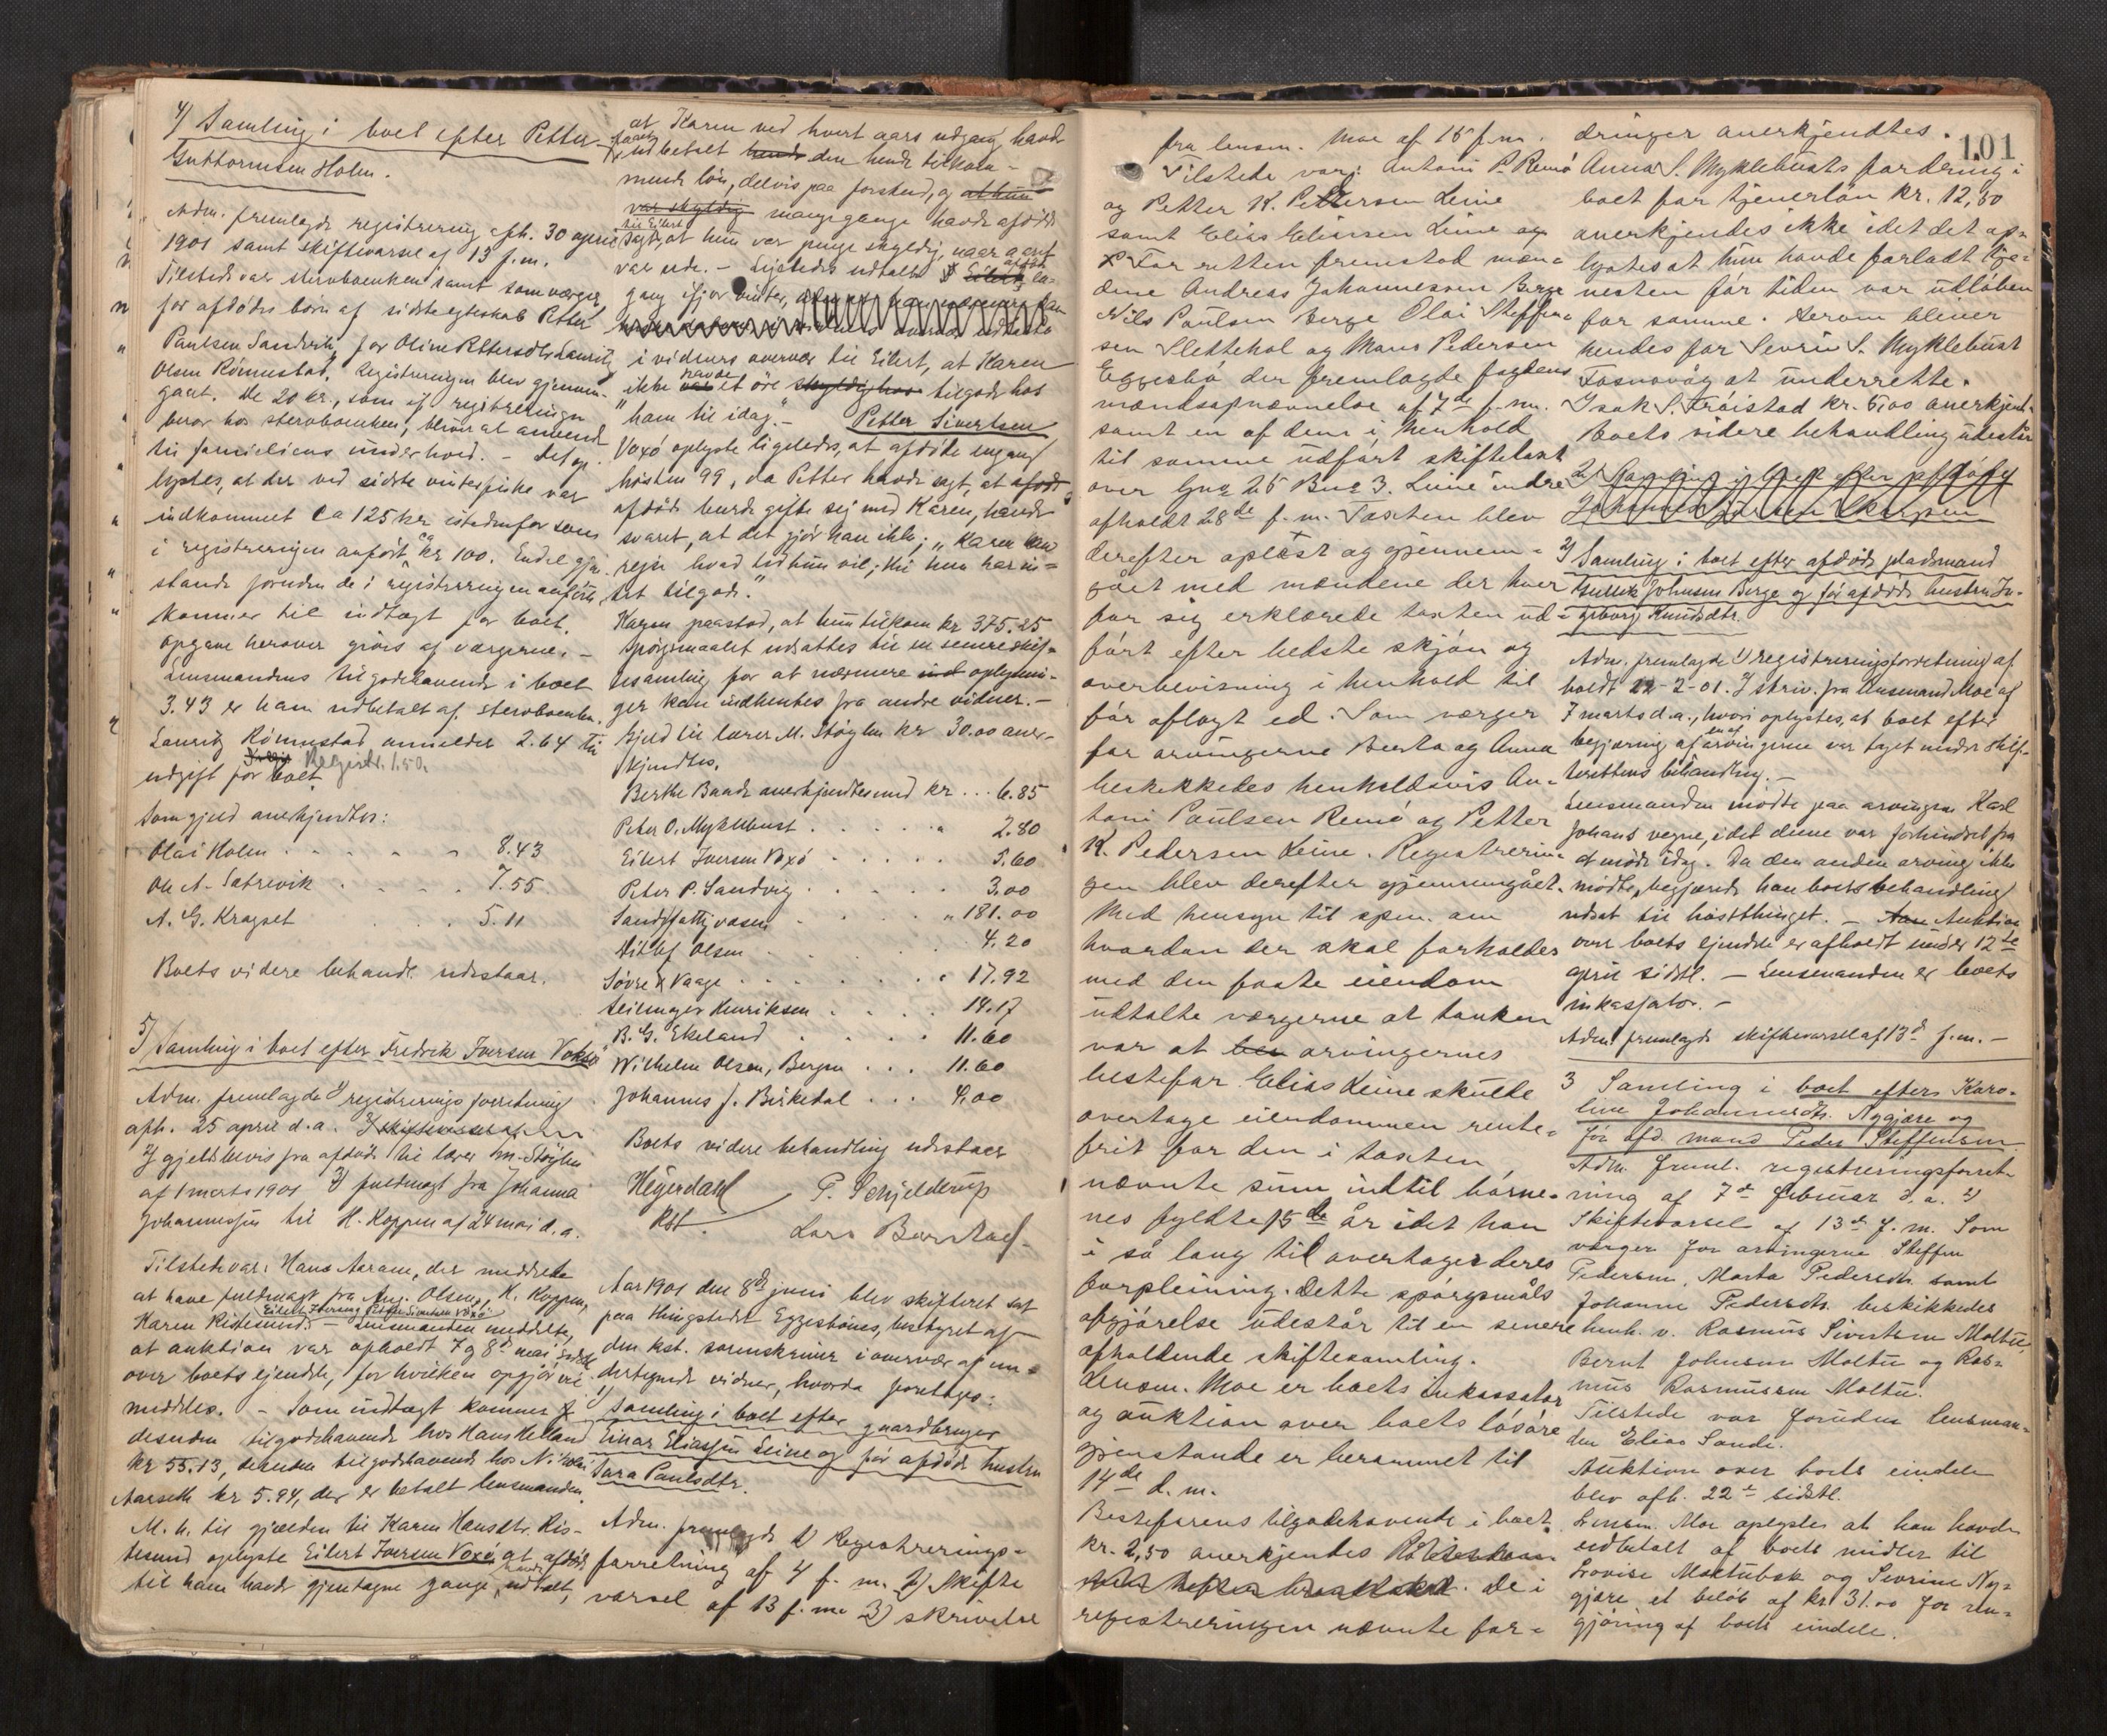 4) Samling i boet efter Petter
Guttormsen Holm.
Adm. fremlagde registrering afh. 30 april
1901 samt skiftevarsel af 13 f.m.
Tilstede var sterboenken samt som værger
for afdødes børn af sidste egteskab Petter
Paulsen Sandvik, for Oline Pettersdtr Lauritz
Olsen Rönnestad. Registreringen blev gjennem-
gaaet. De 20 kr., som if registreringen
beror hos sterboenken, bliver at anvende
til familiens underhold. - Det op-
lystes, at der ved sidste vinterfiske var
indkommet ca 125 kr istedenfor som
i registreringen anført ca kr 100. Endel gjen-
stande foruden de i registreringen anførte
kommer til indtægt for boet.
opgave herover gives af værgerne. -
Lensmandens tilgodehavende i boet
3.43 er ham udbetalt af sterboenken.
Lauritz Rönnestad anmeldes 2.64 til
udgift for boet. Registr. 1.50.
Som gjeld anerkjendtes:
Olai Holm . . . . . 8.43
Ole A. Sætrevik . . . . 7.55.
A. G. Kragset . . . 5.11
Boets videre behandl. udestaar.
5) Samling i boet efter Fredrik Iversen Voksø
Adm. fremlagde 1) registreringsforretning
afh. 25 april d.a. 2) skiftevarsel af
2) gjeldsbevis fra afdøde til lærer M. Støylen
af 1 marts 1901 3) fuldmagt fra Johanna
Johannessen til H. Koppen af 24 mai d.a.
Tilstede var: Hans Aaram, der meddelte
at have fuldmagt fra Aug. Olsen, K. Koppen,
Eilert Iversen, Petter Sivertsen Voxø
Karen Ristesund. - Lensmanden meddelte,
at auktion var afholdt 7 og 8de mai sidstl.
over boets ejendele, for hvilken opgjør vil
meddeles. - Som indtægt kommer
desuden tilgodehavende hos Hans Helland
kr 55.13, desuden tilgodehavende hos Nikolai
Aarseth kr 5.94, der er betalt lensmanden.
M. h. til gjælden til Karen Hansdtr. Ris-
tesund oplyste Eilert Iversen Voxø, at afdøde
til ham havde gjentagne gange havde udtalt,
at Karen ved hvert aars udgang havde
faaet udbetalt hende den hende tilkom-
mende løn, delvis paa forskud, og at hun
var skyldig mangegange havde afdøde
til Eilert sagt, at hun var penge skyldig, naar aaret
var ude. - Ligeledes udtalte afdøde en-
gang ifjor vinter,
i vidners overvær til Eilert, at Karen
ikke var havde et öre skyldig hos tilgode hos
"ham til idag". - Petter Sivertsen
Voxö oplyste ligeledes, at afdøde engang
høsten 99, da Petter havde sagt, at afdøde
afdøde burde gifte sig med Karen, havde
svaret, at det gjör han ikke; "Karen kan
rejse hvad tid hun vil; thi hun har in-
tet tilgode."
Karen paastod, at hun tilkom kr 375.25
Spörgsmaalet udsattes til en senere skif-
tesamling for at nærmere ind oplysnin-
ger kan indhentes fra andre vidner. -
Gjeld til lærer M. Støylen kr 30.00 aner-
kjendtes.
Berthe Baade anerkjendtes med kr . . . 6.85
Peter O. Myklebust . . . . . " 2.80
Eilert Iversen Voxö . . . . . 5.60
Peter P. Sandvig . . . . . 3.00
Sands fattigvæsen . . . . " 181.00
Olsen . . . . . 4.20
Sövre Vaage . . . . . . . " 17.92
Seilmager Henriksen . . . . 14.17
B. G. Ekeland . . . . . 11.60
Wilhelm Olsen, Bergen . . . 11.60
Johannes J. Birkedal . . . 4.00
Boets videre behandling udestaar
Heyerdahl
kst.
P. Schjelderup
Lars Barstad.
Aar 1901 den 8de juni blev skifteret sat
paa thingstedet Eggesbönes, bestyret af
den kst. sorenskriver i overvær af un-
dertegnede vidner, hvorda foretages:
1) Samling i boet efter gaardbruger
Einar Eliassen Leine og før afdøde hustru
Sara Paulsdtr.
Adm. fremlagde 1) Registrerings-
forretning af 4 f. m. 2) Skifte
varsel af 13 f. m. 3) skrivelse
101
fra lensm. Moe af 15 f.m.
Tilstede var: Antoni P. Remö
og Petter K. Pettersen Leine
samt Elias Eliassen Leine og
For retten fremstod mæn-
dene Andreas Johannessen Berge
Nils Paulsen Berge Olai Steffen-
sen Slettehol og Mons Pedersen
Eggesbö der fremlagde fogdens
mændsopnævnelse af 7de f.m.
samt en af dem i henhold
til samme udfört skiftetaxt
over Gno 25 Bno 3. Leine indre
afholdt 28de f.m. Taxten blev
derefter oplæst og gjennem-
gået med mændene der hver
for sig erklærede taxten ud-
fört efter bedste skjön og
overbevisning i henhold til
för aflagt ed. Som værger
for arvingerne Berta og Anna
beskikkedes henholdsvis An-
toni Paulsen Remö og Petter
K. Pedersen Leine. Registrerin-
gen blev derefter gjennemgået.
Med hensyn til spm. om
hvordan der skal forholdes
med den faste eiendom
udtalte værgerne at tanken
var at ben arvingernes
bestefar Elias Leine skulde
overtage eiendommen rente-
frit for den i taxten
nævnte sum indtil börne-
nes fyldte 15de år idet han
i så lang tid overtager deres
forpleining. Dette spörgsmåls
afgjörelse udestår til en senere
afholdende skiftesamling.
Lensm. Moe er boets inkassator
og auktion over boets lösöre
gjenstande er berammet til
14de d. m.
Bestefarens tilgodehavende i boet
kr. 2,50 anerkjendes
De i
registreringen nævnte for-
dringer anerkjendtes.
Anna S. Myklebusts fordring i
boet for tjenerlön kr. 12,50
anerkjendes ikke idet det op-
lystes at hun havde forladt tje-
nesten för tiden var udlöben
for samme. Herom blever
hendes far Sevrin S. Myklebust
Fosnavåg at underrette.
Isak S. Fröistad kr. 5,00 anerkjent.
Boets videre behandling udestår
2) Samling i boet efter afdöde
Johannes
2) Samling i boet efter afdøde pladsmand
Gullik Johnsen Berge og før afdøde hustru In-
geborg Knudsdtr.
Adm. fremlagde 1) registreringsforretning af
holdt 22-2-01. 2) skriv. fra lensmand Moe af
7 marts d.a., hvori oplystes, at boet efter
begjæring af en af arvingerne var taget under skif-
terettens behandling. -
Lensmanden mødte paa arvingen Karl
Johans vegne, idet denne var forhindret fra
at møde idag. Da den anden arving ikke
mødte, begjærede han boets behandling
udsat til høstthinget. - Auktion
over boets ejendele er afholdt under 12te
april sidstl. - Lensmanden er boets
inkassator. -
Adm. fremlagde skiftevarsel af 13de f.m. -
3 Samling i boet efter Karo-
line Johannesdtr. Nygjære og
før afd. mand Peder Steffensen
Adm. freml. registreringsforret-
ning af 7de februar d.a. 2)
Skiftevarsel af 13de f.m. Som
værger for arvingerne Steffen
Pedersen, Marta Pedersdtr. samt
Johanne Pedersdtr. beskikkedes
henh. v. Rasmus Sivertsen Moltu,
Bernt Johnsen Moltu og Ras-
mus Rasmussen Moltu.
Tilstede var foruden lensman-
den Elias Sande.
Auktion over boets eindele
blev afh. 22de sidstl.
Lensm. Moe oplyste at han havde
udbetalt af boets midler til
Lovise Moltubak og Sevrine Ny-
gjære et beløb af kr. 31.00 for ren-
gjöring af boets eindele.